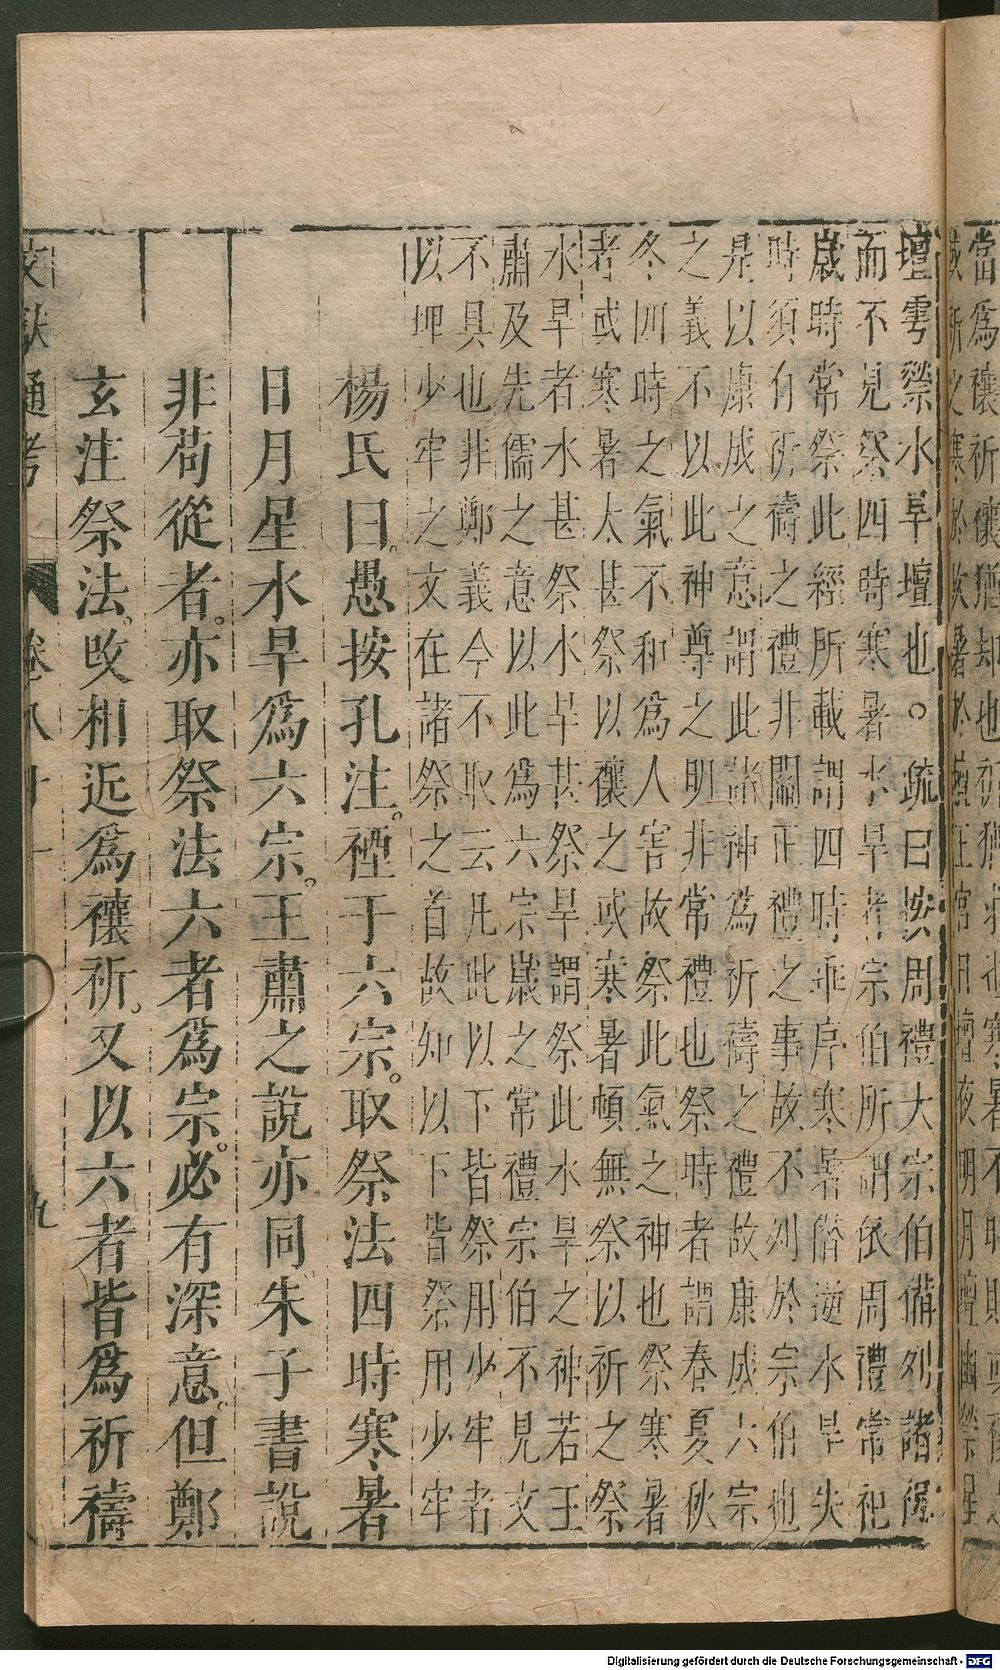 壇雩禜水旱壇也。疏曰按周禮大宗伯備列諸祀
而不見祭四時寒暑水旱者宗伯所謂依周禮常祀
歲時常祭此經所載謂四時乖序寒暑僭逆水旱失
時須有祈禱之禮非關正禮之事故不列於宗伯也
是以康成之意謂此諸神為祈禱之禮故康成六宗
之義不以此神尊之明非常禮也祭時者謂春夏秋
冬四時之氣不和為人害故祭此氣之神也祭寒暑
者或寒暑太甚祭以禳之或寒暑頓無祭以祈之祭
水旱者水甚祭水旱甚祭旱謂祭此水旱之神若王
肅及先儒之意以此為六宗嵗之常禮宗伯不見文
不具也非鄭義今不取云凡此以下皆祭用少牢者
以埋少牢之文在諸祭之首故知以下皆祭用少牢
楊氏曰愚按孔注禋于六宗取祭法四時寒暑
日月星水旱為六宗王肅之說亦同朱子書說
非苟從者亦取祭法六者為宗必有深意但鄭
玄注祭法攺相近為禳祈又以六者皆為祈禱
文獻通考 卷八十一 九